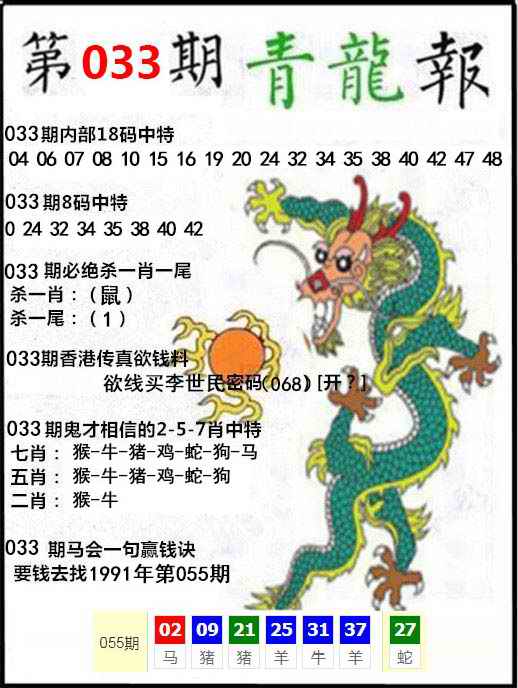 第033期青龍報
033期内部18码中特
04 06 07 08 10 15 16 19 20 24 32 34 35 38 40 42 47 48
033期8码中特
0 24 32 34 35 38 40 42
033 期必绝杀一肖一尾
杀一肖：（鼠）
杀一尾：（1）
033期香港传真欲钱料
欲线买李世民密码(068) [开?]
033期鬼才相信的2-5-7肖中特
七肖： 猴-牛-猪-鸡-蛇-狗-马
五肖： 猴-牛-猪-鸡-蛇-狗
二肖： 猴-牛
033 期马会一句赢钱诀
要钱去找1991年第055期
055期 02 09 21 25 31 37 27
马 猪 猪 羊 牛 羊 蛇